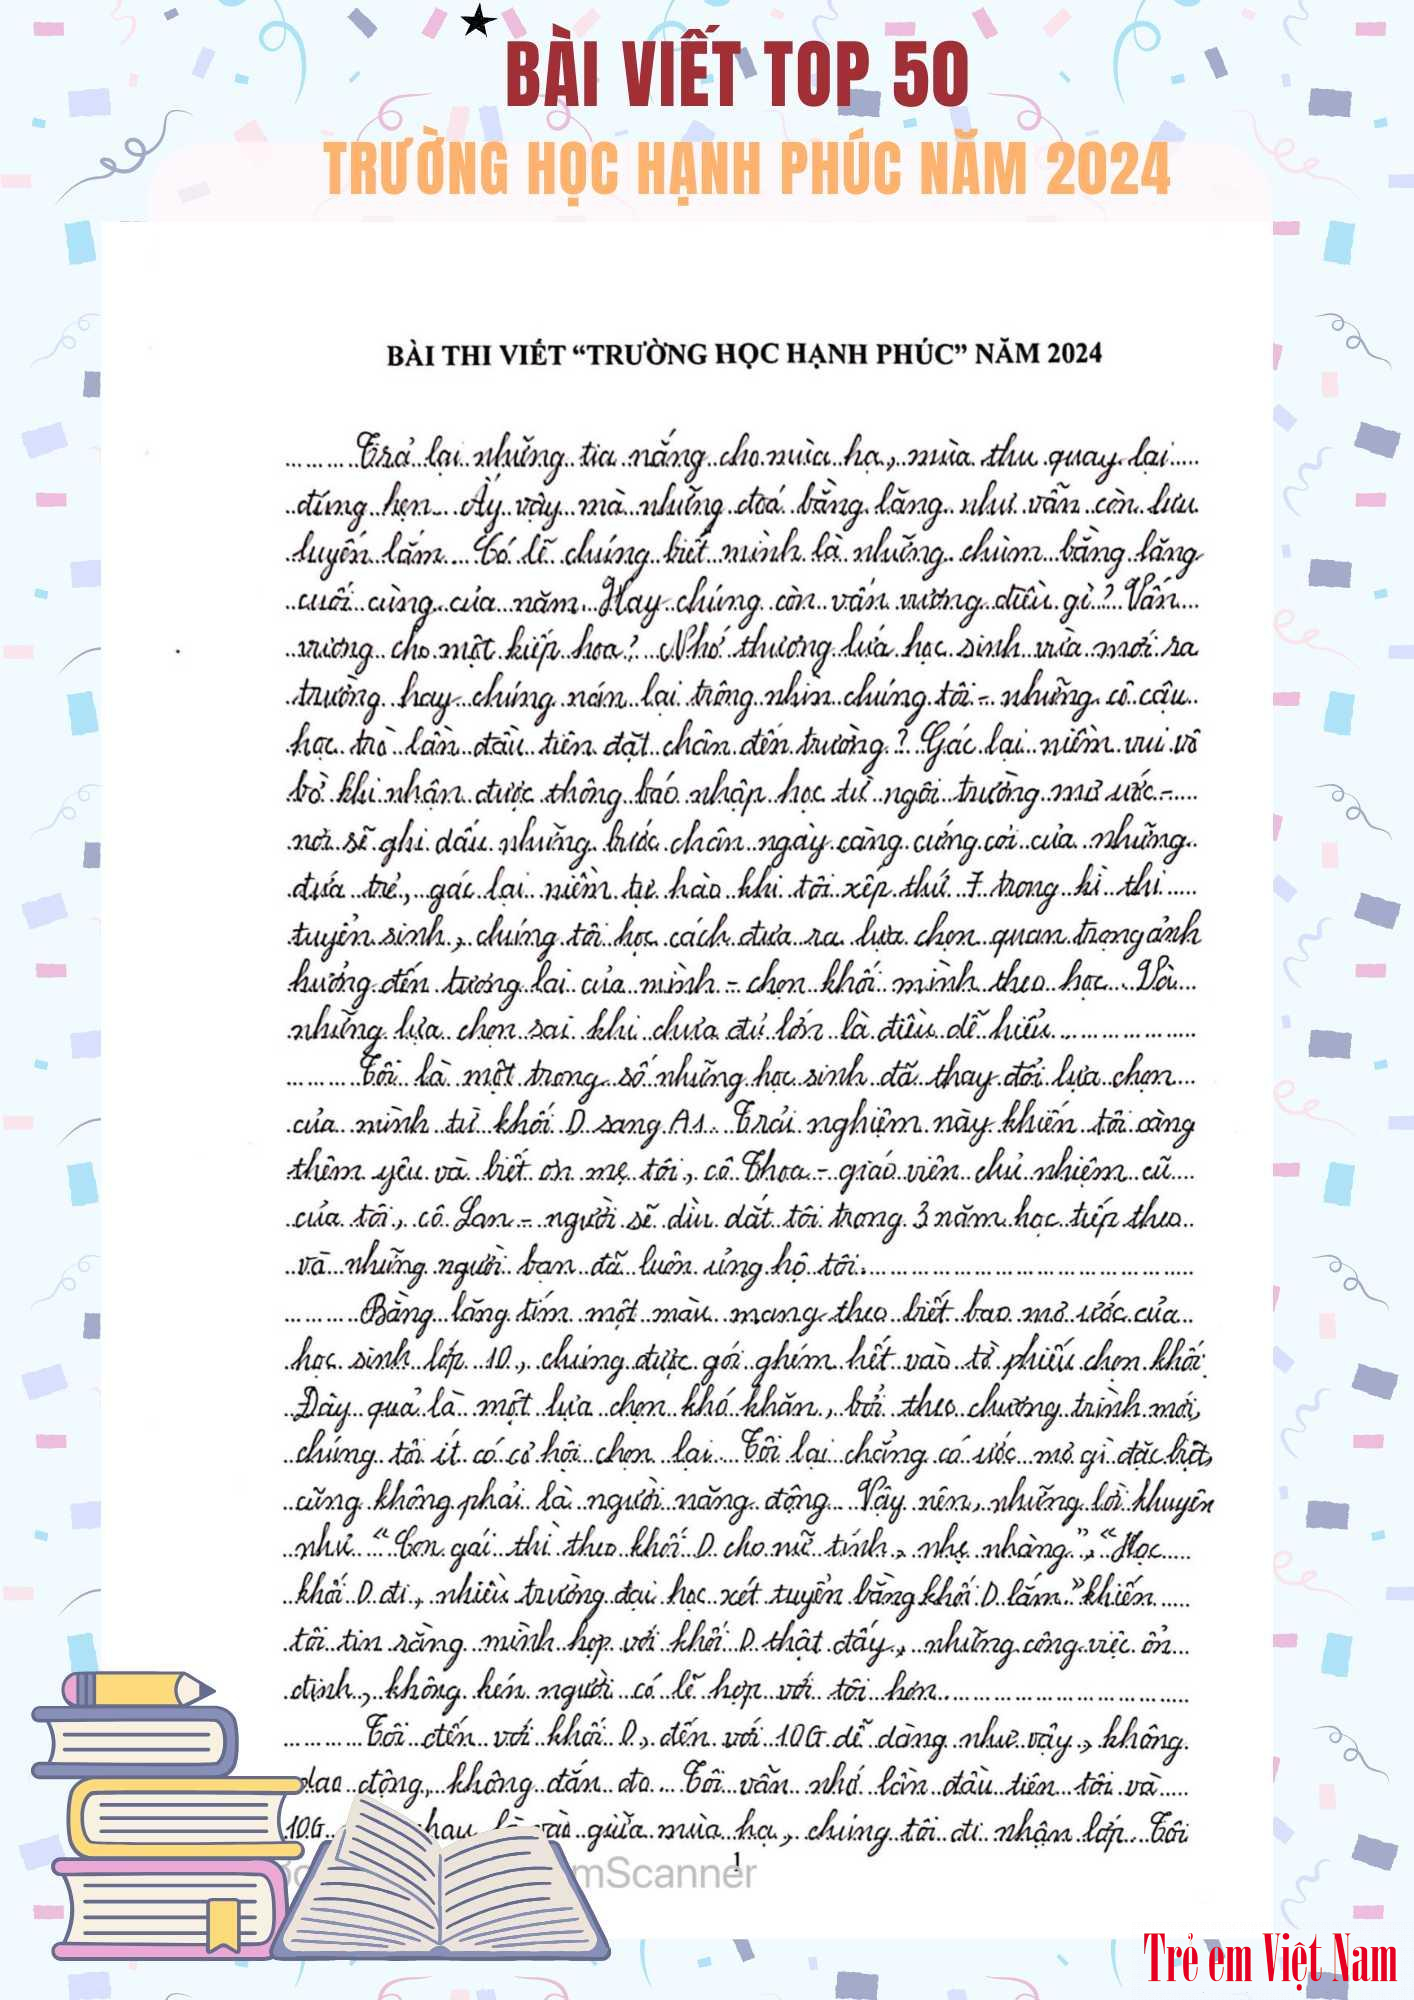 BÀI VIẾT TOP 50
TRƯỜNG HỌC HẠNH PHÚC NĂM 2024
BÀI THI VIẾT “TRƯỜNG HỌC HẠNH PHÚC” NĂM 2024
Trả lại những tia nắng cho mùa hạ, mùa thu quay lại
đúng hẹn. Ấy vậy mà những đoá bằng lăng như vẫn còn lưu
luyến lắm... Có lẽ chúng biết mình là những chùm bằng lăng
cuối cùng của năm. Hay chúng còn vấn vương điều gì? Vấn
vương cho một kiếp hoa? Nhớ thương lứa học sinh vừa mới ra
trường hay chúng nán lại trông nhìn chúng tôi - những cô cậu
học trò lần đầu tiên đặt chân đến trường? Gác lại niềm vui vỡ
bờ khi nhận được thông báo nhập học từ ngôi trường mơ ước -
nơi sẽ ghi dấu những bước chân ngày càng cứng cỏi của những
đứa trẻ, gác lại niềm tự hào khi tôi xếp thứ 7 trong kì thi
tuyển sinh, chúng tôi học cách đưa ra lựa chọn quan trọng ảnh
hưởng đến tương lai của mình - chọn khối mình theo học. Và
những lựa chọn sai khi chưa đủ lớn là điều dễ hiểu...
Tôi là một trong số những học sinh đã thay đổi lựa chọn
của mình từ khối D sang A1. Trải nghiệm này khiến tôi càng
thêm yêu và biết ơn mẹ tôi, cô Thoa - giáo viên chủ nhiệm cũ
của tôi, cô Lan - người sẽ dìu dắt tôi trong 3 năm học tiếp theo
và những người bạn đã luôn ủng hộ tôi.
Bằng lăng tím một màu mang theo biết bao mơ ước của
học sinh lớp 10, chúng được gói ghém hết vào tờ phiếu chọn khối.
Đây quả là một lựa chọn khó khăn, bởi theo chương trình mới,
chúng tôi ít có cơ hội chọn lại. Tôi lại chẳng có ước mơ gì đặc biệt,
cũng không phải là người năng động. Vậy nên, những lời khuyên
như “Con gái thì theo khối D cho nữ tính, nhẹ nhàng”, “Học
khối D đi, nhiều trường đại học xét tuyển bằng khối D lắm” khiến
tôi tin rằng mình hợp với khối D thật đấy, những công việc ổn
định, không kén người có lẽ hợp với tôi hơn.
Tôi đến với khối D, đến với 10G dễ dàng như vậy, không
dao động, không đắn đo. Tôi vẫn nhớ lần đầu tiên tôi và
10G nhau là vào giữa mùa hạ, chúng tôi đi nhận lớp. Tôi
1
mScanner
Trẻ em Việt Nam